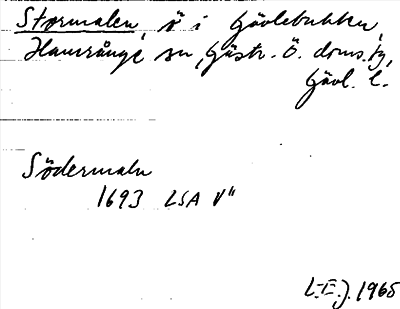 Stormalen, ö i Gävlebukten,
Hamrånge sn, Gästr. Ö. doms.tg,
Gävl. l.
Södermaln
1693 LSA V"
L.E.J. 1965